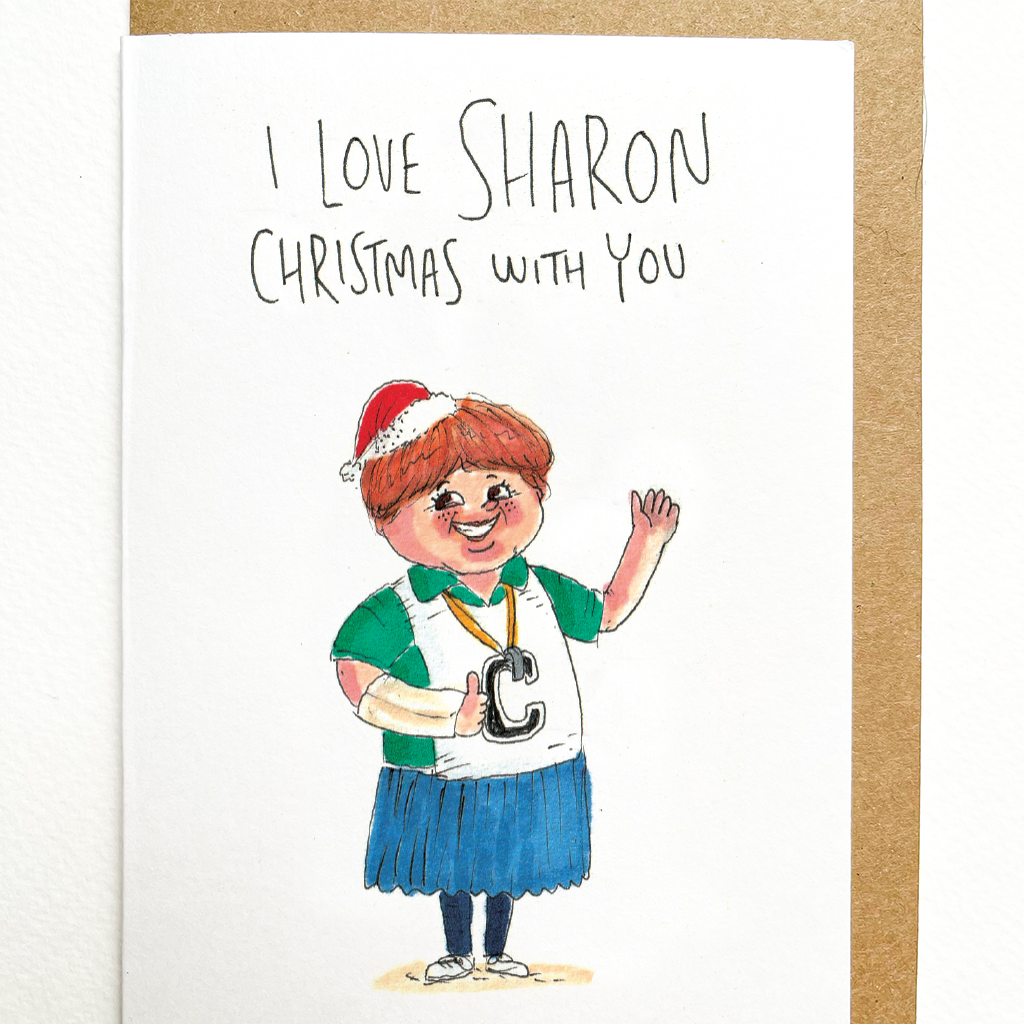 I LOVE SHARON
CHRISTMAS WITH YOU
C